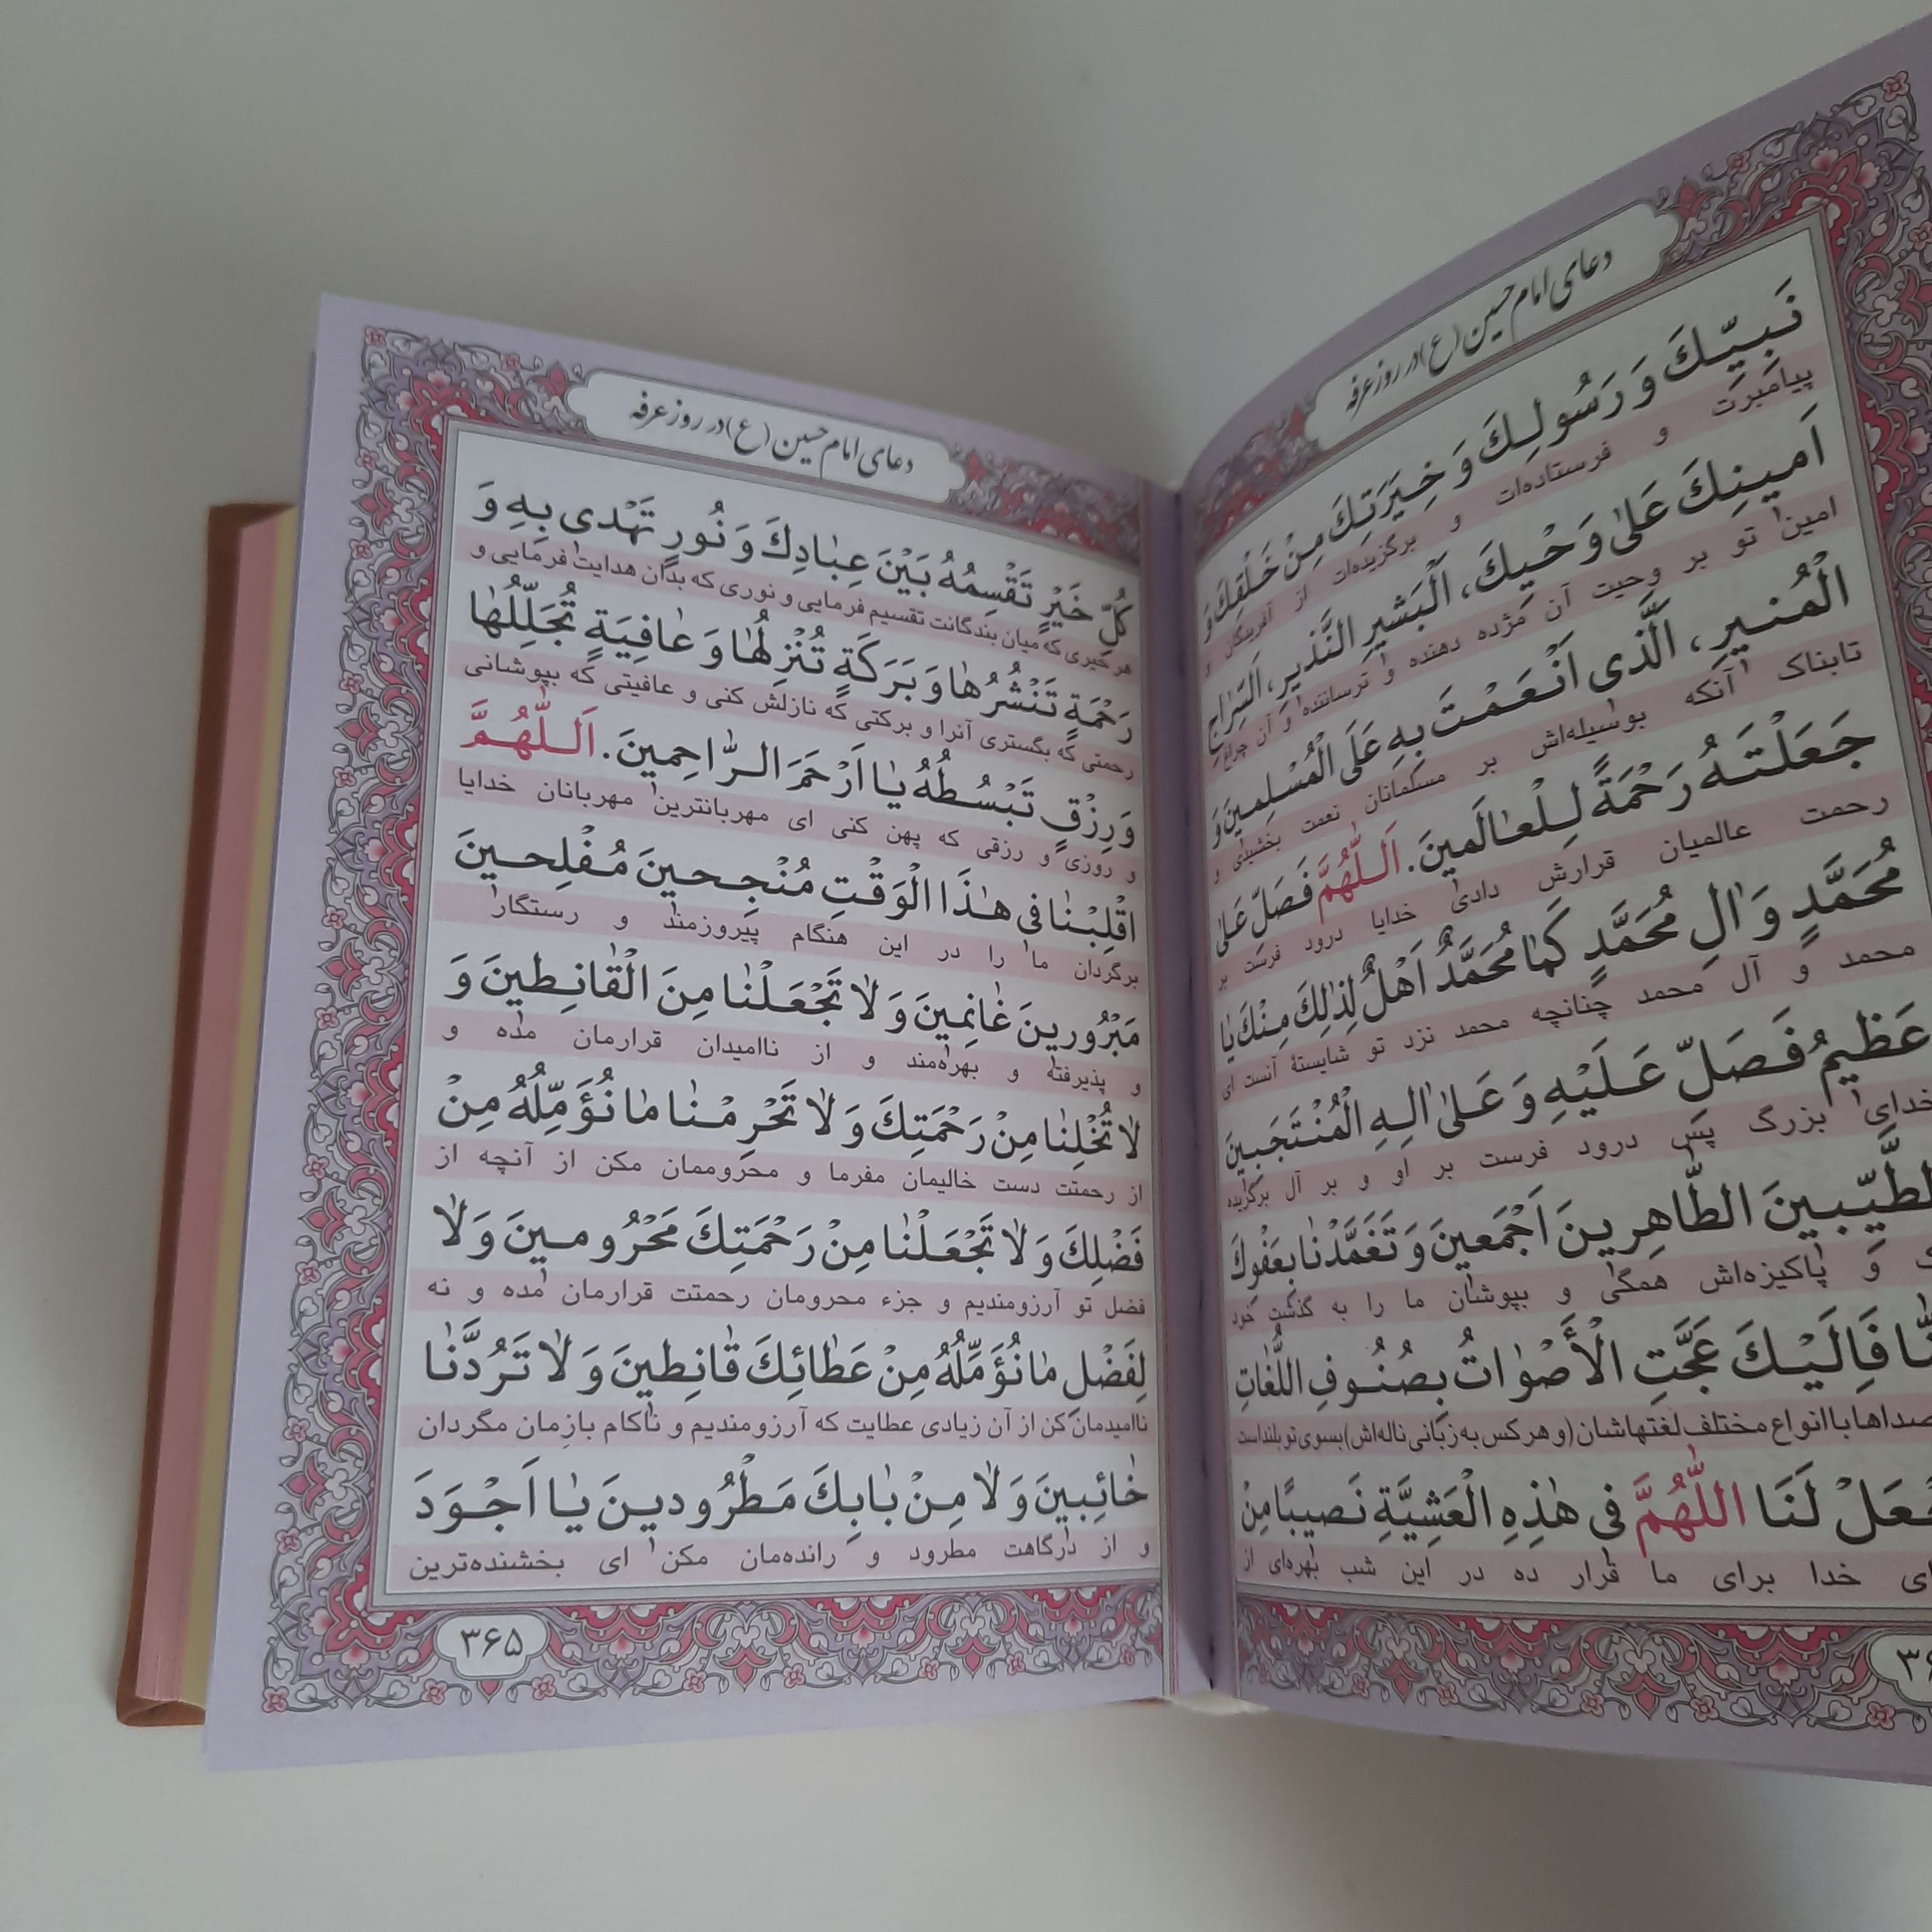 دعای امام حسین (ع) در روز عرفه
نَبِیِّكَ وَ رَسُولِكَ وَ خِیَرَتِكَ مِنْ خَلْقِكَ وَ
پیامبرت و فرستاده‌ات و برگزیده‌ات از آفریدگان و
اَمینِكَ عَلیٰ وَحْیِكَ، اَلْبَشیرِ النَّذیرِ، اَلسِّرٰاجِ
امین تو بر وحیت آن مژده دهنده و ترساننده و آن چراغ
الْمُنیرِ، اَلَّذی اَنْعَمْتَ بِهِ عَلَی الْمُسْلِمینَ وَ
تابناک آنکه بوسیله‌اش بر مسلمانان نعمت بخشیدی و
جَعَلْتَهُ رَحْمَةً لِلْعٰالَمینَ. اَللّٰهُمَّ فَصَلِّ عَلیٰ
رحمت عالمیان قرارش دادی خدایا درود فرست بر
مُحَمَّدٍ وَ اٰلِ مُحَمَّدٍ كَمٰا مُحَمَّدٌ اَهْلٌ لِذٰلِكَ مِنْكَ یٰا
محمد و آل محمد چنانچه محمد نزد تو شایستهٔ آنست ای
عَظیمُ فَصَلِّ عَلَیْهِ وَ عَلیٰ اٰلِهِ الْمُنْتَجَبینَ
خدای بزرگ پس درود فرست بر او و بر آل برگزیده
الطَّیِّبینَ الطّٰاهِرینَ اَجْمَعینَ وَ تَغَمَّدْنٰا بِعَفْوِكَ
و پاکیزه‌اش همگی و بپوشان ما را به گذشت خود
فَاِلَیْكَ عَجَّتِ الْأَصْوٰاتُ بِصُنُوفِ اللُّغٰاتِ
صداها با انواع مختلف لغتهاشان (و هر کس به زبانی ناله‌اش) بسوی تو بلند است
لَنَا اللّٰهُمَّ فی هٰذِهِ الْعَشِیَّةِ نَصیبًا مِنْ
ای خدا برای ما قرار ده در این شب بهره‌ای از
دعای امام حسین (ع) در روز عرفه
كُلِّ خَیْرٍ تَقْسِمُهُ بَیْنَ عِبٰادِكَ وَ نُورٍ تَهْدی بِهِ وَ
هر خیری که میان بندگانت تقسیم فرمایی و نوری که بدان هدایت فرمایی و
رَحْمَةٍ تَنْشُرُهٰا وَ بَرَكَةٍ تُنْزِلُهٰا وَ عٰافِیَةٍ تُجَلِّلُهٰا
رحمتی که بگستری آنرا و برکتی که نازلش کنی و عافیتی که بپوشانی
وَ رِزْقٍ تَبْسُطُهُ یٰا اَرْحَمَ الرّٰاحِمینَ. اَللّٰهُمَّ
و روزی و رزقی که پهن کنی ای مهربانترین مهربانان خدایا
اقْلِبْنٰا فی هٰذَا الْوَقْتِ مُنْجِحینَ مُفْلِحینَ
برگردان ما را در این هنگام پیروزمند و رستگار
مَبْرُورینَ غٰانِمینَ وَ لٰا تَجْعَلْنٰا مِنَ الْقٰانِطینَ وَ
و پذیرفته و بهره‌مند و از ناامیدان قرارمان مده و
لٰا تُخْلِنٰا مِنْ رَحْمَتِكَ وَ لٰا تَحْرِمْنٰا مٰا نُؤَمِّلُهُ مِنْ
از رحمتت دست خالیمان مفرما و محروممان مکن از آنچه از
فَضْلِكَ وَ لٰا تَجْعَلْنٰا مِنْ رَحْمَتِكَ مَحْرُومینَ وَ لٰا
فضل تو آرزومندیم و جزء محرومان رحمتت قرارمان مده و نه
لِفَضْلِ مٰا نُؤَمِّلُهُ مِنْ عَطٰائِكَ قٰانِطینَ وَ لٰا تَرُدَّنٰا
ناامیدمان کن از آن زیادی عطایت که آرزومندیم و ناکام بازمان مگردان
خٰائِبینَ وَ لٰا مِنْ بٰابِكَ مَطْرُودینَ یٰا اَجْوَدَ
و از درگاهت مطرود و رانده‌مان مکن ای بخشنده‌ترین
۳۶۵